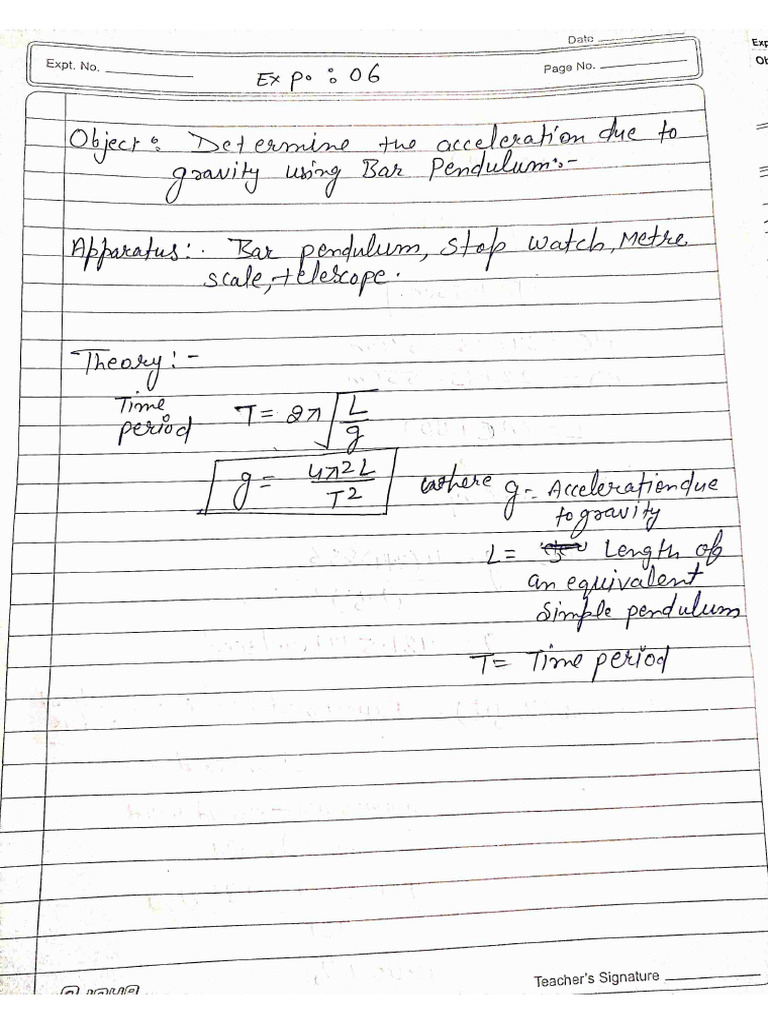 Date
Expt. No.
Exp. : 06
Page No.
Object: Determine the acceleration due to
gravity using Bar Pendulum:-
Apparatus:. Bar pendulum, Stop watch, Metre
scale, telescope.
Theory:-
Time
period T = 2π √(L/g)
g = 4π²L / T² where g = Acceleration due
to gravity
L = Length of
an equivalent
Simple pendulum
T = Time period
Teacher's Signature
Exp
Ob